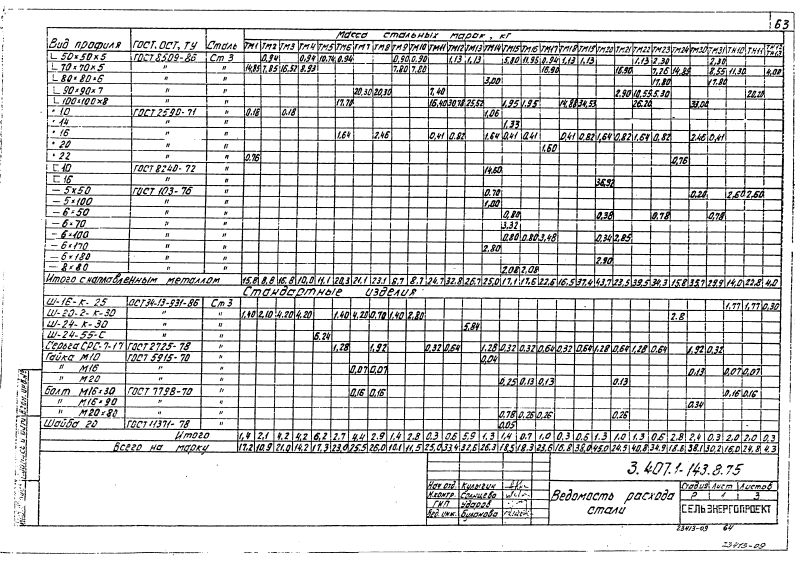 63
Вид профиля ГОСТ, ОСТ, ТУ Сталь Масса стальных марок, кг
ТМ1 ТМ2 ТМ3 ТМ4 ТМ5 ТМ6 ТМ7 ТМ8 ТМ9 ТМ10 ТМ11 ТМ12 ТМ13 ТМ14 ТМ15 ТМ16 ТМ17 ТМ18 ТМ19 ТМ20 ТМ21 ТМ22 ТМ23 ТМ24 ТМ30 ТМ31
∟ 50×50×5 ГОСТ 8509-86 Ст 3 0,94 0,94 10,74 0,94 0,90 0,90 1,13 1,13 5,80 11,95 0,94 1,13 1,13 1,13 2,30 2,30
∟ 70×70×5 " " 14,85 7,85 16,52 8,93 7,80 7,80 16,90 16,90 7,26 14,85 8,55 11,30 4,00
∟ 80×80×6 " " 3,00 17,80 17,80
∟ 90×90×7 " " 20,30 20,30 7,40 2,90 10,55 5,30 20,20
∟ 100×100×8 " " 17,78 16,40 30,78 25,52 1,95 1,95 14,88 34,53 26,20 33,00
• 10 ГОСТ 2590-71 " 0,16 0,18 1,06
• 14 " " 1,33
• 16 " " 1,64 2,46 0,41 0,82 1,64 0,41 0,41 0,41 0,82 1,64 0,82 1,64 0,82 2,46 0,41
• 20 " " 1,60
• 22 " " 0,76 0,76
⊏ 10 ГОСТ 8240-72 " 14,60
⊏ 16 " " 36,92
— 5×50 ГОСТ 103-76 " 0,70 0,20 2,60 2,60
— 5×100 " " 1,00
— 6×50 " " 0,80 0,38 0,78 0,78
— 6×70 " " 3,32
— 6×100 " " 0,80 0,80 3,48 0,34 2,85
— 6×170 " " 2,80
— 6×180 " " 2,90
— 8×80 " " 2,08 2,08
Итого с наплавленным металлом 15,8 8,8 16,8 10,0 11,1 20,3 21,1 23,1 8,7 8,7 24,7 32,8 26,7 25,0 17,1 17,6 22,6 16,5 37,4 43,7 23,5 39,5 34,3 15,8 35,7 29,9 14,0 22,8 4,0
Стандартные изделия
Ш-16-К-25 ОСТ 34-13-931-86 Ст 3 1,77 1,77 0,30
Ш-20-2-К-30 " " 1,40 2,10 4,20 4,20 1,40 4,20 0,70 1,40 2,80 2,8
Ш-24-К-30 " " 5,84
Ш-24-55-С " " 6,24
Серьга СРС-7-17 ГОСТ 2725-78 " 1,28 1,92 0,32 0,64 1,28 0,32 0,32 0,64 0,32 0,64 1,28 0,64 1,28 0,64 1,92 0,32
Гайка М10 ГОСТ 5915-70 " 0,04
" М16 " " 0,07 0,07 0,13 0,07 0,07
" М20 " " 0,25 0,13 0,13 0,13
Болт М16×30 ГОСТ 7798-70 " 0,16 0,16 0,16 0,16
" М16×90 " " 0,34
" М20×80 " " 0,78 0,26 0,26 0,26
Шайба 20 ГОСТ 11371-78 " 0,05
Итого 1,4 2,1 4,2 4,2 6,2 2,7 4,4 2,9 1,4 2,8 0,3 0,6 5,9 1,3 1,4 0,7 1,0 0,3 0,6 1,3 1,0 1,3 0,6 2,8 2,4 0,3 2,0 2,0 0,3
Всего на марку 17,2 10,9 21,0 14,2 17,3 23,0 25,5 26,0 10,1 11,5 25,0 33,4 32,6 26,3 18,5 18,3 23,6 16,8 38,0 45,0 24,5 40,8 34,9 18,6 38,1 30,2 16,0 24,8 4,3
3.407.1-143.8.75
Нач. отд. Кулыгин
Н.контр. Солнцева
ГИП Ударов
Вед. инж. Буланова
Ведомость расхода стали
Стадия Лист Листов
Р 1 3
СЕЛЬЭНЕРГОПРОЕКТ
23413-09 64
23413-09